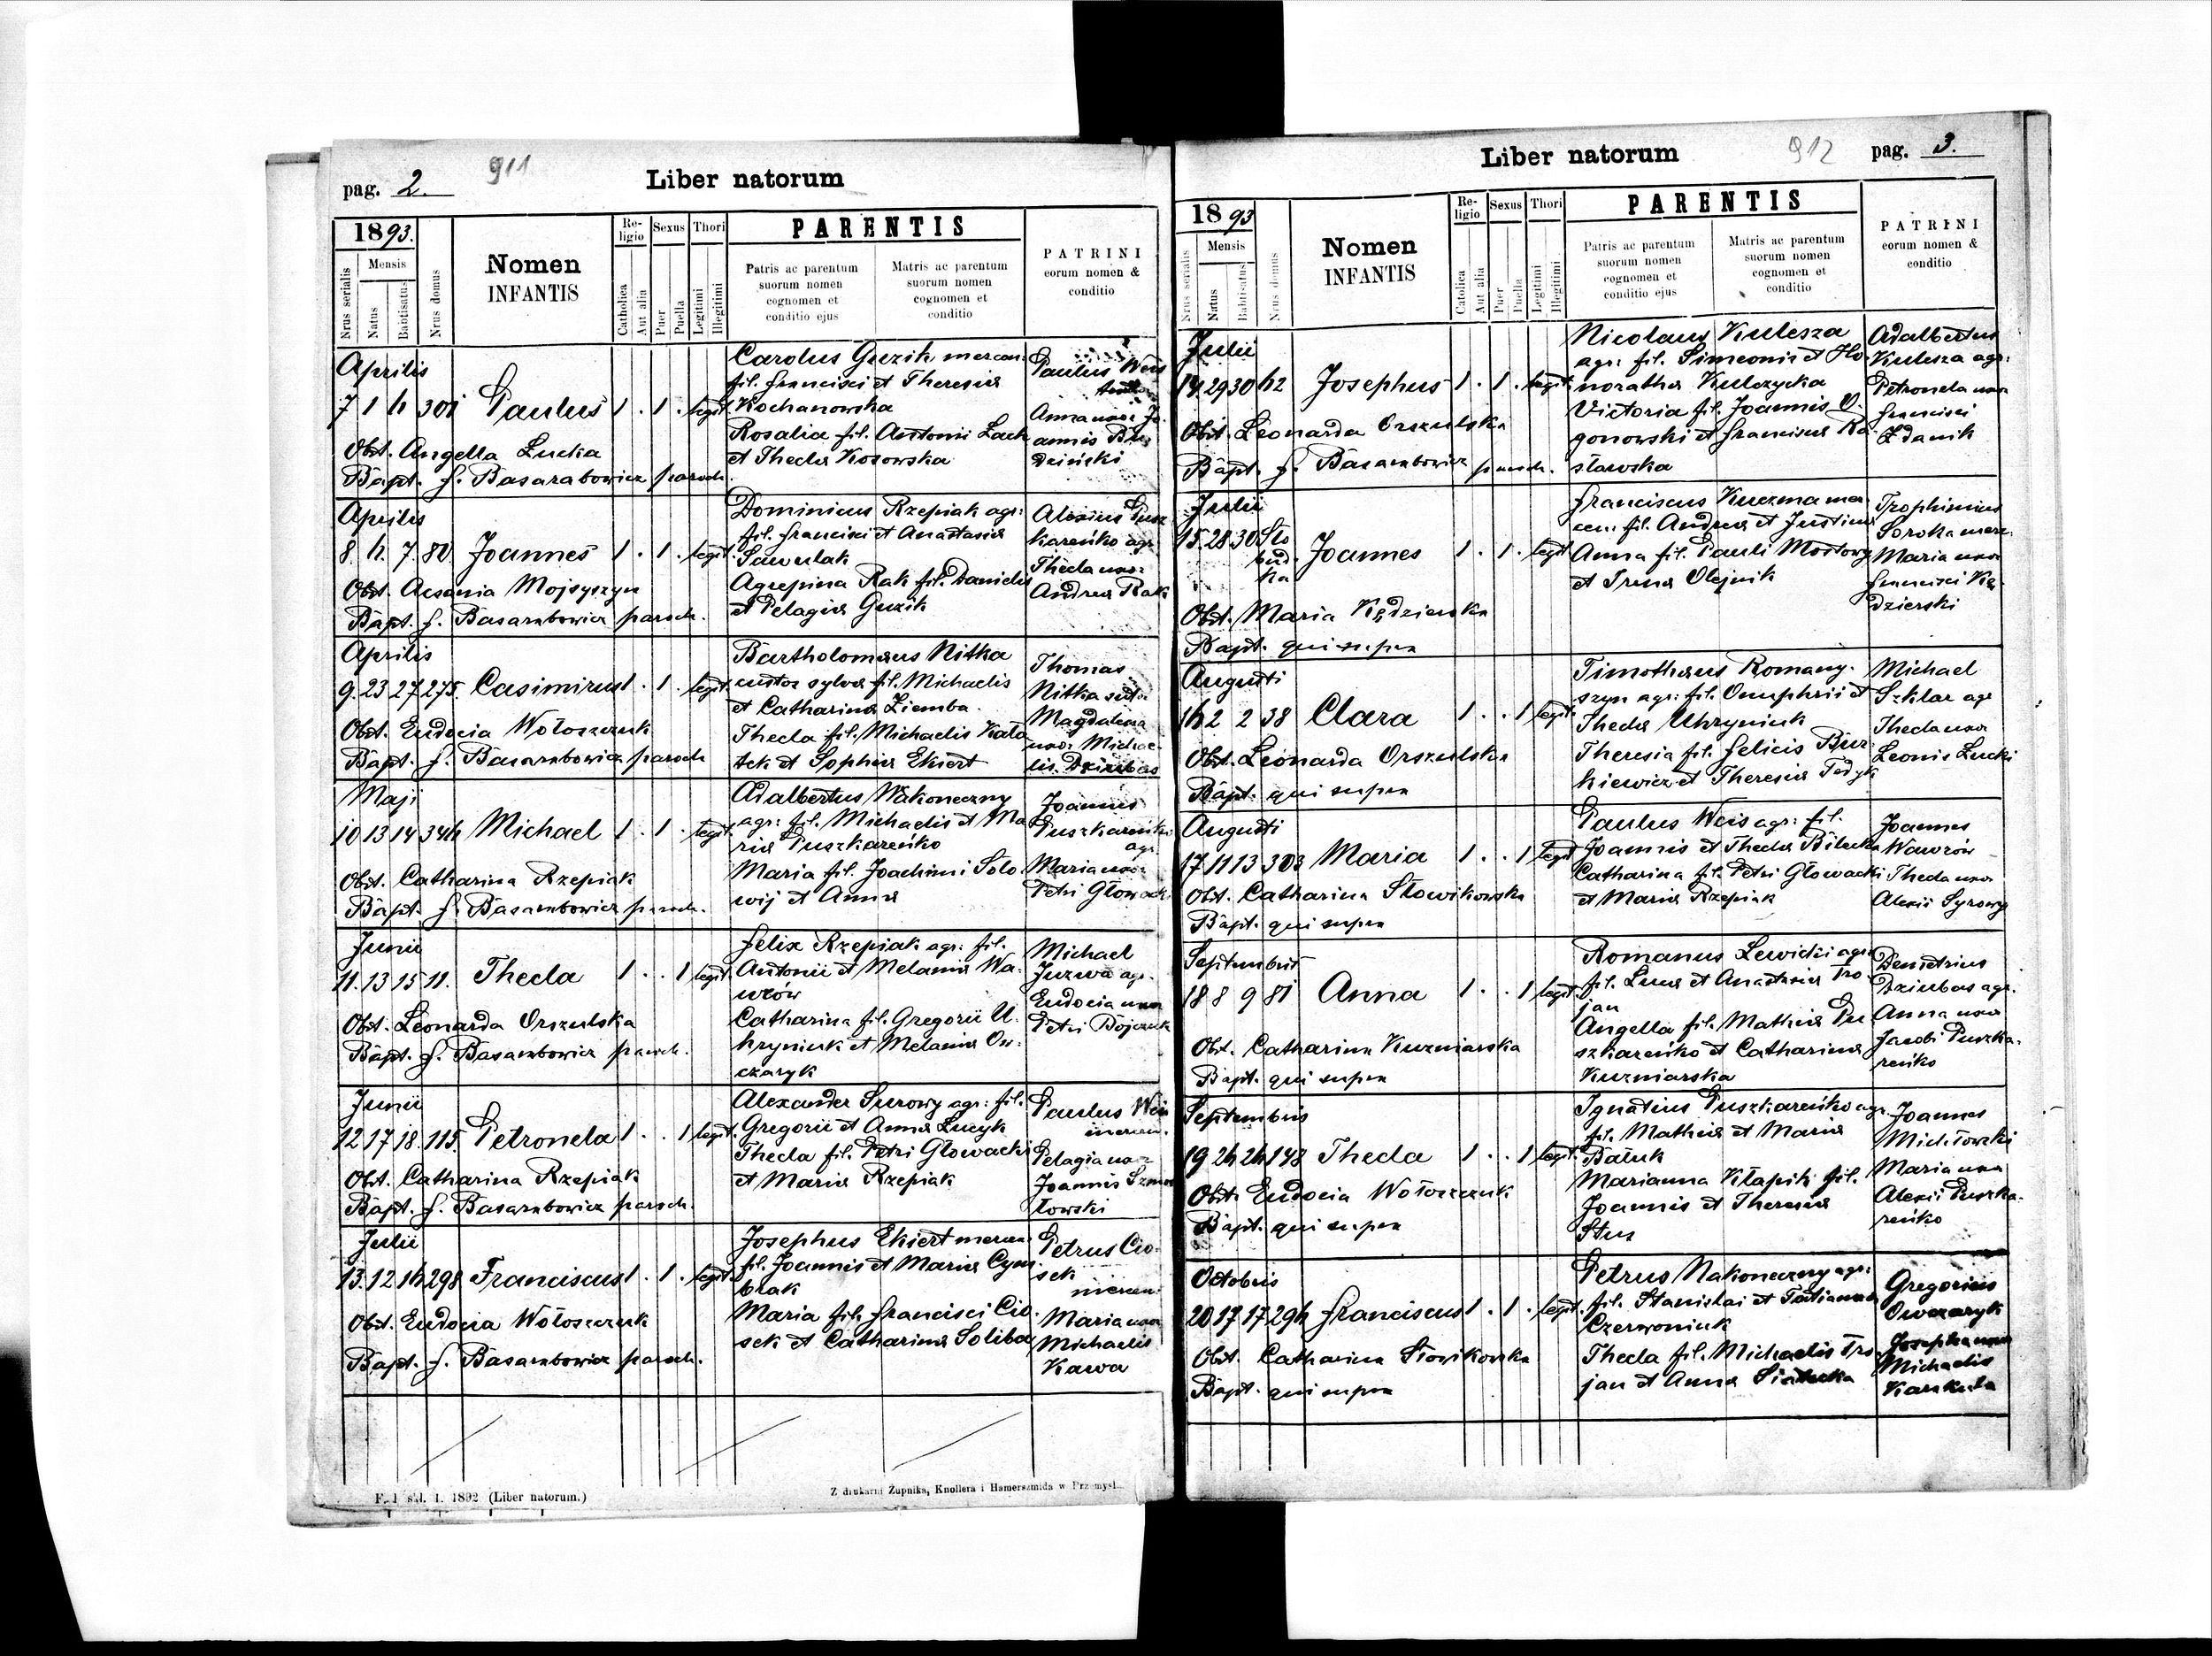 pag. 2.
911
Liber natorum
1893.
Nrus serialis
Mensis
Natus
Babtisatus
Nrus domus
Nomen
INFANTIS
Re-
ligio
Catholica
Aut alia
Sexus
Puer
Puella
Thori
Legitimi
Illegitimi
PARENTIS
Patris ac parentum
suorum nomen
cognomen et
conditio ejus
Matris ac parentum
suorum nomen
cognomen et
conditio
PATRINI
eorum nomen &
conditio
Aprilis
7 1 4 301 Paulus 1 . 1 . legit.
Obst. Angella Lucka
Bapt. f. Basarabowicz paroch.
Carolus Guzik mercen:
fil. Francisci et Theresiæ
Kochanowska
Rosalia fil. Antonii Lack
et Theclæ Kosowska
Paulus Weis
Anna uxor Jo-
annis
Aprilis
8. 4. 7. 80. Joannes 1 . 1 . legit.
Obst. Acsania Mojsyszyn
Bapt. f. Basarabowicz paroch.
Dominicus Rzepiak agr:
fil. Francisci et Anastasiæ
Sawulak
Agrepina Rak fil. Danielis
et Pelagiæ Guzik
Alexius Pusz
kareńko agr
Thecla uxor
Andreæ Rak
Aprilis
9. 23 27 275. Casimirus 1 . 1 . legit.
Obst. Eudocia Wołoszczuk
Bapt. f. Basarabowicz paroch
Bartholomæus Nitka
custos sylvæ fil. Michaelis
et Catharinæ Ziemba.
Thecla fil. Michaelis Kato
tek et Sophiæ Ekiert
Thomas
Nitka
Magdalena
uxor Michae-
lis Dziubas
Maji
10 13 14 344 Michael 1 . 1 . legit.
Obst. Catharina Rzepiak
Bapt. f. Basarabowicz paroch.
Adalbertus Nakoneczny
agr: fil. Michaelis et Ma
riæ Puszkareńko
Maria fil. Joachimi Soło
wij et Annæ
Joannes
Puszkareńko
agr
Maria uxor
Petri Głowacki
Junii
11. 13 15 11. Thecla 1 . . 1 legit.
Obst. Leonarda Orszulska
Bapt. f. Basarabowicz paroch.
Felix Rzepiak agr: fil.
Antonii et Melaniæ Wa-
wrów
Catharina fil. Gregorii U-
hryniuk et Melaniæ Ow-
czaryk
Michael
Juzwa agr.
Eudocia uxor
Petri Bojczuk
Junii
12 17 18. 115. Petronela 1 . . 1 legit.
Obst. Catharina Rzepiak
Bapt. f. Basarabowicz paroch.
Alexander Surowy agr: fil.
Gregorii et Annæ Lucyk
Thecla fil. Petri Głowacki
et Mariæ Rzepiak
Paulus Weis
mercen.
Pelagia uxor
Joannis
łowski
Julii
13. 12 14 298 Franciscus 1 . 1 . legit.
Obst. Eudocia Wołoszczuk
Bapt. f. Basarabowicz paroch.
Josephus Ekiert mercen
fil. Joannis et Mariæ Cym
brak
Maria fil. Francisci Cio-
sek et Catharinæ Soliba
Petrus Cio-
sek
mercen.
Maria uxor
Michaelis
Kawa
F. 1 skł. 1. 1892 (Liber natorum.)
Z drukarni Żupnika, Knollera i Hamerszmida w Przemyśl
Liber natorum
912
pag. 3.
1893
Nrus serialis
Mensis
Natus
Babtisatus
Nrus domus
Nomen
INFANTIS
Re-
ligio
Catolica
Aut alia
Sexus
Puer
Puella
Thori
Legitimi
Illegitimi
PARENTIS
Patris ac parentum
suorum nomen
cognomen et
conditio ejus
Matris ac parentum
suorum nomen
cognomen et
conditio
PATRINI
eorum nomen &
conditio
Julii
14. 29 30 42 Josephus 1 . 1 . legit.
Obst. Leonarda Orszulska
Bapt. f. Basarabowicz paroch.
Nicolaus Kulesza
agr: fil. Simeonis et Ho-
norathæ Kulczycka
Victoria fil. Joannis O-
gonowski et Franciscæ Ra-
sławska
Adalbertus
Kulesza agr:
Petronela uxor
Francisci
Zdanik
Julii
15. 28 30 Sło
bud-
ka
Joannes 1 . 1 . legit
Obst. Maria Kędzierska
Bapt. qui supra
Franciscus Kuczma mer
cen: fil. Andreæ et Justinæ
Anna fil. Pauli Mostowy
et Irenæ Olejnik
Trophimius
Soroka merc:
Maria uxor
Francisci Kę-
dzierski
Augusti
16 2 2 38 Clara 1 . . 1 legit.
Obst. Leonarda Orszulska
Bapt. qui supra
Timothæus Romany-
szyn agr: fil. Onuphrii et
Theclæ Uhryniuk
Theresia fil. Felicis Bur
kiewicz et Theresiæ Fedyk
Michael
Szklar agr
Thecla uxor
Leonis Lucki
Augusti
17 11 13 303 Maria 1 . . 1 legit
Obst. Catharina Słowikowska
Bapt. qui supra
Paulus Weis agr: fil.
Joannis et Theclæ Bilecka
Catharina fil. Petri Głowacki
et Mariæ Rzepiak
Joannes
Wawrów
Thecla uxor
Alexii Syrowy
Septembris
18 8 9 81 Anna 1 . . 1 legit.
Obst. Catharina Kuzniarska
Bapt. qui supra
Romanus Lewicki agr:
fil. Lucæ et Anastasiæ Tro
jan
Angella fil. Mathiæ Pu
szkareńko et Catharinæ
Kuzniarska
Demetrius
Dziubas agr.
Anna uxor
Jacobi Puszka-
reńko
Septembris
19 24 24 148 Thecla 1 . . 1 legit.
Obst. Eudocia Wołoszczuk
Bapt. qui supra
Ignatius Puszkareńko agr.
fil. Mathiæ et Mariæ
Batuk
Marianna Kłapik fil.
Joannis et Theresiæ
Stus
Joannes
Michłowski
Maria uxor
Alexii Puszka-
reńko
Octobris
20 17 17 294 Franciscus 1 . 1 . legit.
Obst. Catharina Słowikowska
Bapt. qui supra
Petrus Nakoneczny agr:
fil. Stanislai et Tatianna
Czerwoniuk
Thecla fil. Michaelis Tro
jan et Annæ
Gregorius
Owczaryk
Josepha uxor
Michaelis
Karakuła